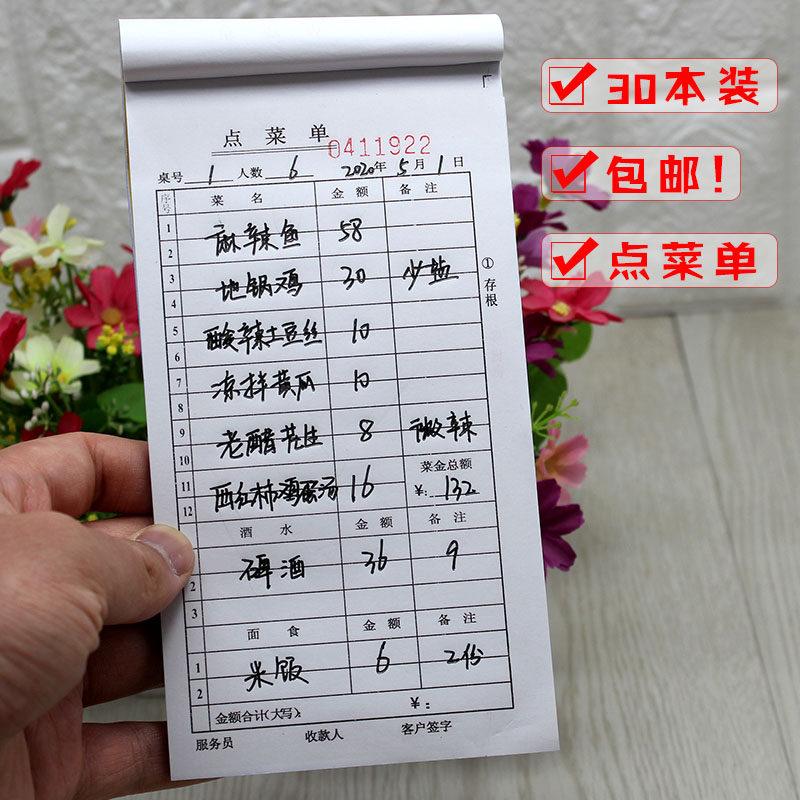 30本装
包邮!
点菜单
点菜单
0411922
桌号 1 人数 6 2020年 5月 1日
序号 菜名 金额 备注
1
2 麻辣鱼 58
3 地锅鸡 30 少盐
4
5 酸辣土豆丝 10
6
7 凉拌黄瓜 10
8
9 老醋花生 8 微辣
10
11 西红柿鸡蛋汤 16 菜金总额
12 ¥: 132
酒水 金额 备注
啤酒 36 9
2
3
面食 金额 备注
1 米饭 6 2份
2
金额合计(大写): ¥:
服务员 收款人 客户签字
①存根